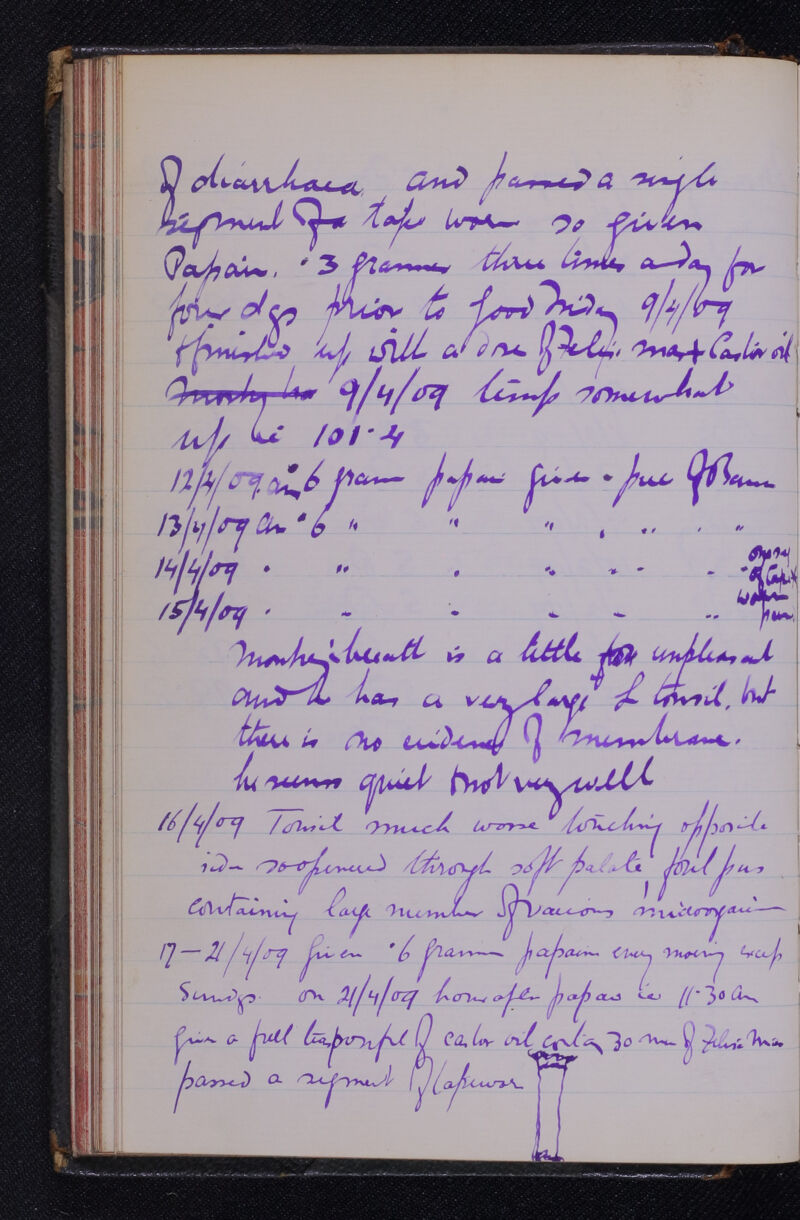 of diarrhaea and passed a single
segment of a tape worm so given
Papain. ·3 gramme three times a day for
four dys prior to Good Friday 9/4/09
& finished up with a dose of Felix mas & Castor oil
9/4/09 temp somewhat
up ie 101·4
12/4/09 am ·6 gram papain given a
13/4/09 am ·6 " " "
14/4/09 " " " "
15/4/09 " " " "
of tape
worm
Monkey's breath is a little unpleasant
and he has a very large L tonsil, but
there is no evidence of membrane.
he seems quiet & not very well
16/4/09 Tonsil much worse touching opposite
side so opened through soft palate, foul pus
containing large number of various microorganism
17 – 21/4/09 Given ·6 gramm papain every morning except
Sundys. on 21/4/09 hour after papain ie 11·30 am
given a full teaspoonful of castor oil contag 30 min of Felix Mas
passed a segment of tapeworm